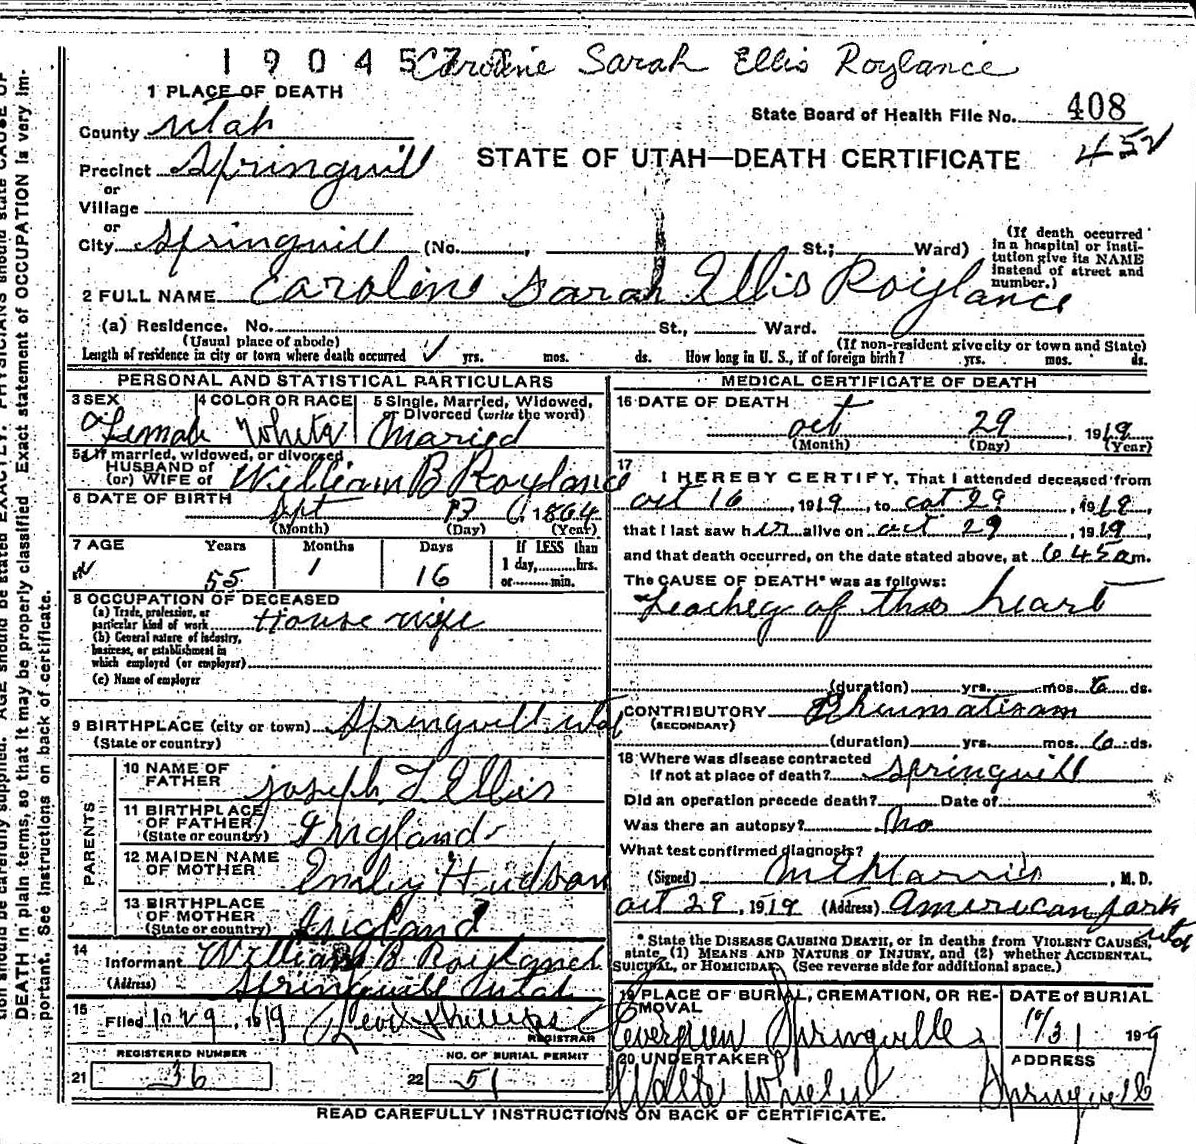 190457 Caroline Sarah Ellis Roylance
1 PLACE OF DEATH
State Board of Health File No. 408
County Utah
452
STATE OF UTAH—DEATH CERTIFICATE
Precinct Springvill
or
Village
or
City Springvill (No. St.; Ward)
(If death occurred in a hospital or institution give its NAME instead of street and number.)
2 FULL NAME Caroline Sarah Ellis Roylance
(a) Residence. No. St., Ward.
(Usual place of abode) (If non-resident give city or town and State)
Length of residence in city or town where death occurred yrs. mos. ds. How long in U. S., if of foreign birth? yrs. mos. ds.
PERSONAL AND STATISTICAL PARTICULARS
3 SEX 4 COLOR OR RACE 5 Single, Married, Widowed, or Divorced (write the word)
Female White Maried
5a If married, widowed, or divorced
HUSBAND of
(or) WIFE of William B Roylance
6 DATE OF BIRTH Sept 13, 1864
(Month) (Day) (Year)
7 AGE Years Months Days If LESS than 1 day, hrs. or min.
55 1 16
8 OCCUPATION OF DECEASED
(a) Trade, profession, or particular kind of work House wife
(b) General nature of industry, business, or establishment in which employed (or employer)
(c) Name of employer
9 BIRTHPLACE (city or town) Springvill Utah
(State or country)
PARENTS
10 NAME OF FATHER Joseph T Ellis
11 BIRTHPLACE OF FATHER (State or country) England
12 MAIDEN NAME OF MOTHER Emily Hudson
13 BIRTHPLACE OF MOTHER (State or country) England
14 Informant William B Roylance
(Address) Springville Utah
15 Filed 10 29, 1919 REGISTRAR
REGISTERED NUMBER NO. OF BURIAL PERMIT
21 36 22 51
MEDICAL CERTIFICATE OF DEATH
16 DATE OF DEATH
Oct 29, 1919
(Month) (Day) (Year)
17 I HEREBY CERTIFY, That I attended deceased from
Oct 16, 1919, to Oct 29, 1919
that I last saw her alive on Oct 29, 1919
and that death occurred, on the date stated above, at 6 45 am.
The CAUSE OF DEATH* was as follows:
of the heart
(duration) yrs. mos. 6 ds.
CONTRIBUTORY Rheumatism
(SECONDARY)
(duration) yrs. mos. 6 ds.
18 Where was disease contracted
If not at place of death? Springvill
Did an operation precede death? Date of
Was there an autopsy? No
What test confirmed diagnosis?
(Signed) , M. D.
Oct 29, 1919 (Address) American fork Utah
* State the DISEASE CAUSING DEATH, or in deaths from VIOLENT CAUSES, state (1) MEANS AND NATURE OF INJURY, and (2) whether ACCIDENTAL, SUICIDAL, or HOMICIDAL. (See reverse side for additional space.)
19 PLACE OF BURIAL, CREMATION, OR REMOVAL DATE of BURIAL
Evergreen Springville 10/31 1919
20 UNDERTAKER ADDRESS
Springville
READ CAREFULLY INSTRUCTIONS ON BACK OF CERTIFICATE.